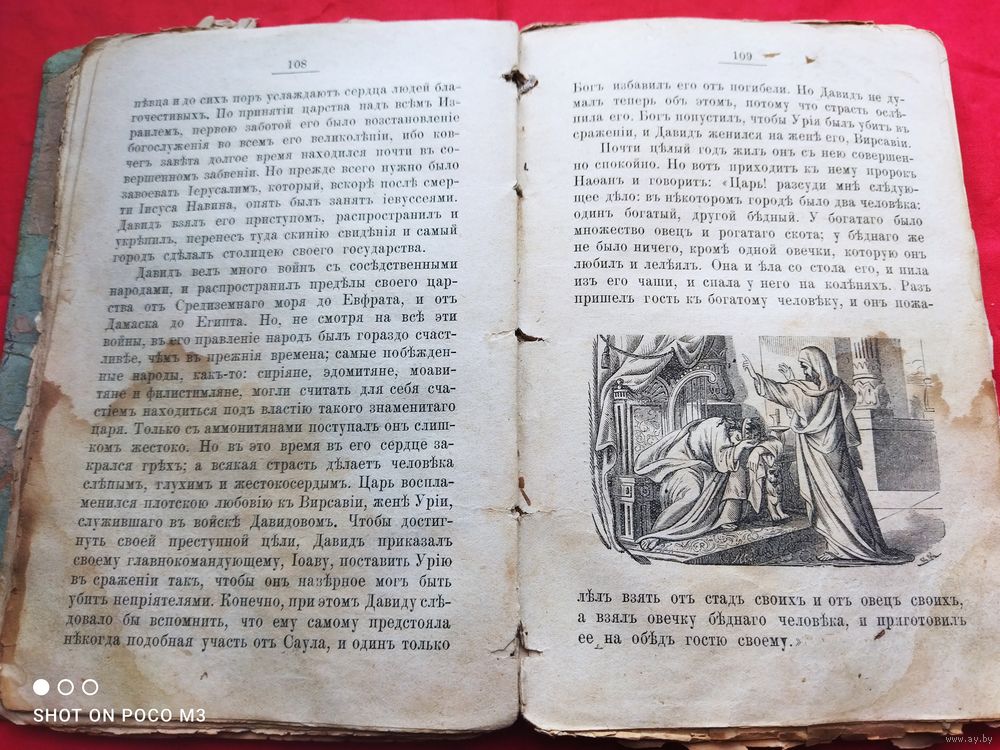 108
пѣвца и до сихъ поръ услаждаютъ сердца людей бла-
гочестивыхъ. По принятіи царства надъ всѣмъ Из-
раилемъ, первою заботой его было возстановленіе
богослуженія во всемъ его великолѣпіи, ибо ков-
чегъ завѣта долгое время находился почти въ со-
вершенномъ забвеніи. Но прежде всего нужно было
завоевать Іерусалимъ, который, вскорѣ послѣ смер-
ти Іисуса Навина, опять былъ занятъ іевуссеями.
Давидъ взялъ его приступомъ, распространилъ и
укрѣпилъ, перенесъ туда скинію свидѣнія и самый
городъ сдѣлалъ столицею своего государства.
Давидъ велъ много войнъ съ сосѣдственными
народами, и распространилъ предѣлы своего цар-
ства отъ Средиземнаго моря до Евфрата, и отъ
Дамаска до Египта. Но, не смотря на всѣ эти
войны, въ его правленіе народъ былъ гораздо счаст-
ливѣе, чѣмъ въ прежнія времена; самые побѣжден-
ные народы, какъ-то: сиріяне, эдомитяне, моави-
тяне и филистимляне, могли считать для себя сча-
стіемъ находиться подъ властію такого знаменитаго
царя. Только съ аммонитянами поступалъ онъ слиш-
комъ жестоко. Но въ это время въ его сердце за-
крался грѣхъ; а всякая страсть дѣлаетъ человѣка
слѣпымъ, глухимъ и жестокосердымъ. Царь воспла-
менился плотскою любовію къ Вирсавіи, женѣ Уріи,
служившаго въ войскѣ Давидовомъ. Чтобы достиг-
нуть своей преступной цѣли, Давидъ приказалъ
своему главнокомандующему, Іоаву, поставить Урію
въ сраженіи такъ, чтобы онъ навѣрное могъ быть
убитъ непріятелями. Конечно, при этомъ Давиду слѣ-
довало бы вспомнить, что ему самому предстояла
нѣкогда подобная участь отъ Саула, и одинъ только
109
Богъ избавилъ его отъ погибели. Но Давидъ не ду-
малъ теперь объ этомъ, потому что страсть ослѣ-
пила его. Богъ попустилъ, чтобы Урія былъ убитъ въ
сраженіи, и Давидъ женился на женѣ его, Вирсавіи.
Почти цѣлый годъ жилъ онъ съ нею совершен-
но спокойно. Но вотъ приходитъ къ нему пророкъ
Наѳанъ и говоритъ: «Царь! разсуди мнѣ слѣдую-
щее дѣло: въ нѣкоторомъ городѣ было два человѣка:
одинъ богатый, другой бѣдный. У богатаго было
множество овецъ и рогатаго скота; у бѣднаго же
не было ничего, кромѣ одной овечки, которую онъ
любилъ и лелѣялъ. Она и ѣла со стола его, и пила
изъ его чаши, и спала у него на колѣняхъ. Разъ
пришелъ гость къ богатому человѣку, и онъ пожа-
лѣлъ взять отъ стадъ своихъ и отъ овецъ своихъ,
а взялъ овечку бѣднаго человѣка, и приготовилъ
ее на обѣдъ гостю своему.»
SHOT ON POCO M3
www.ay.by